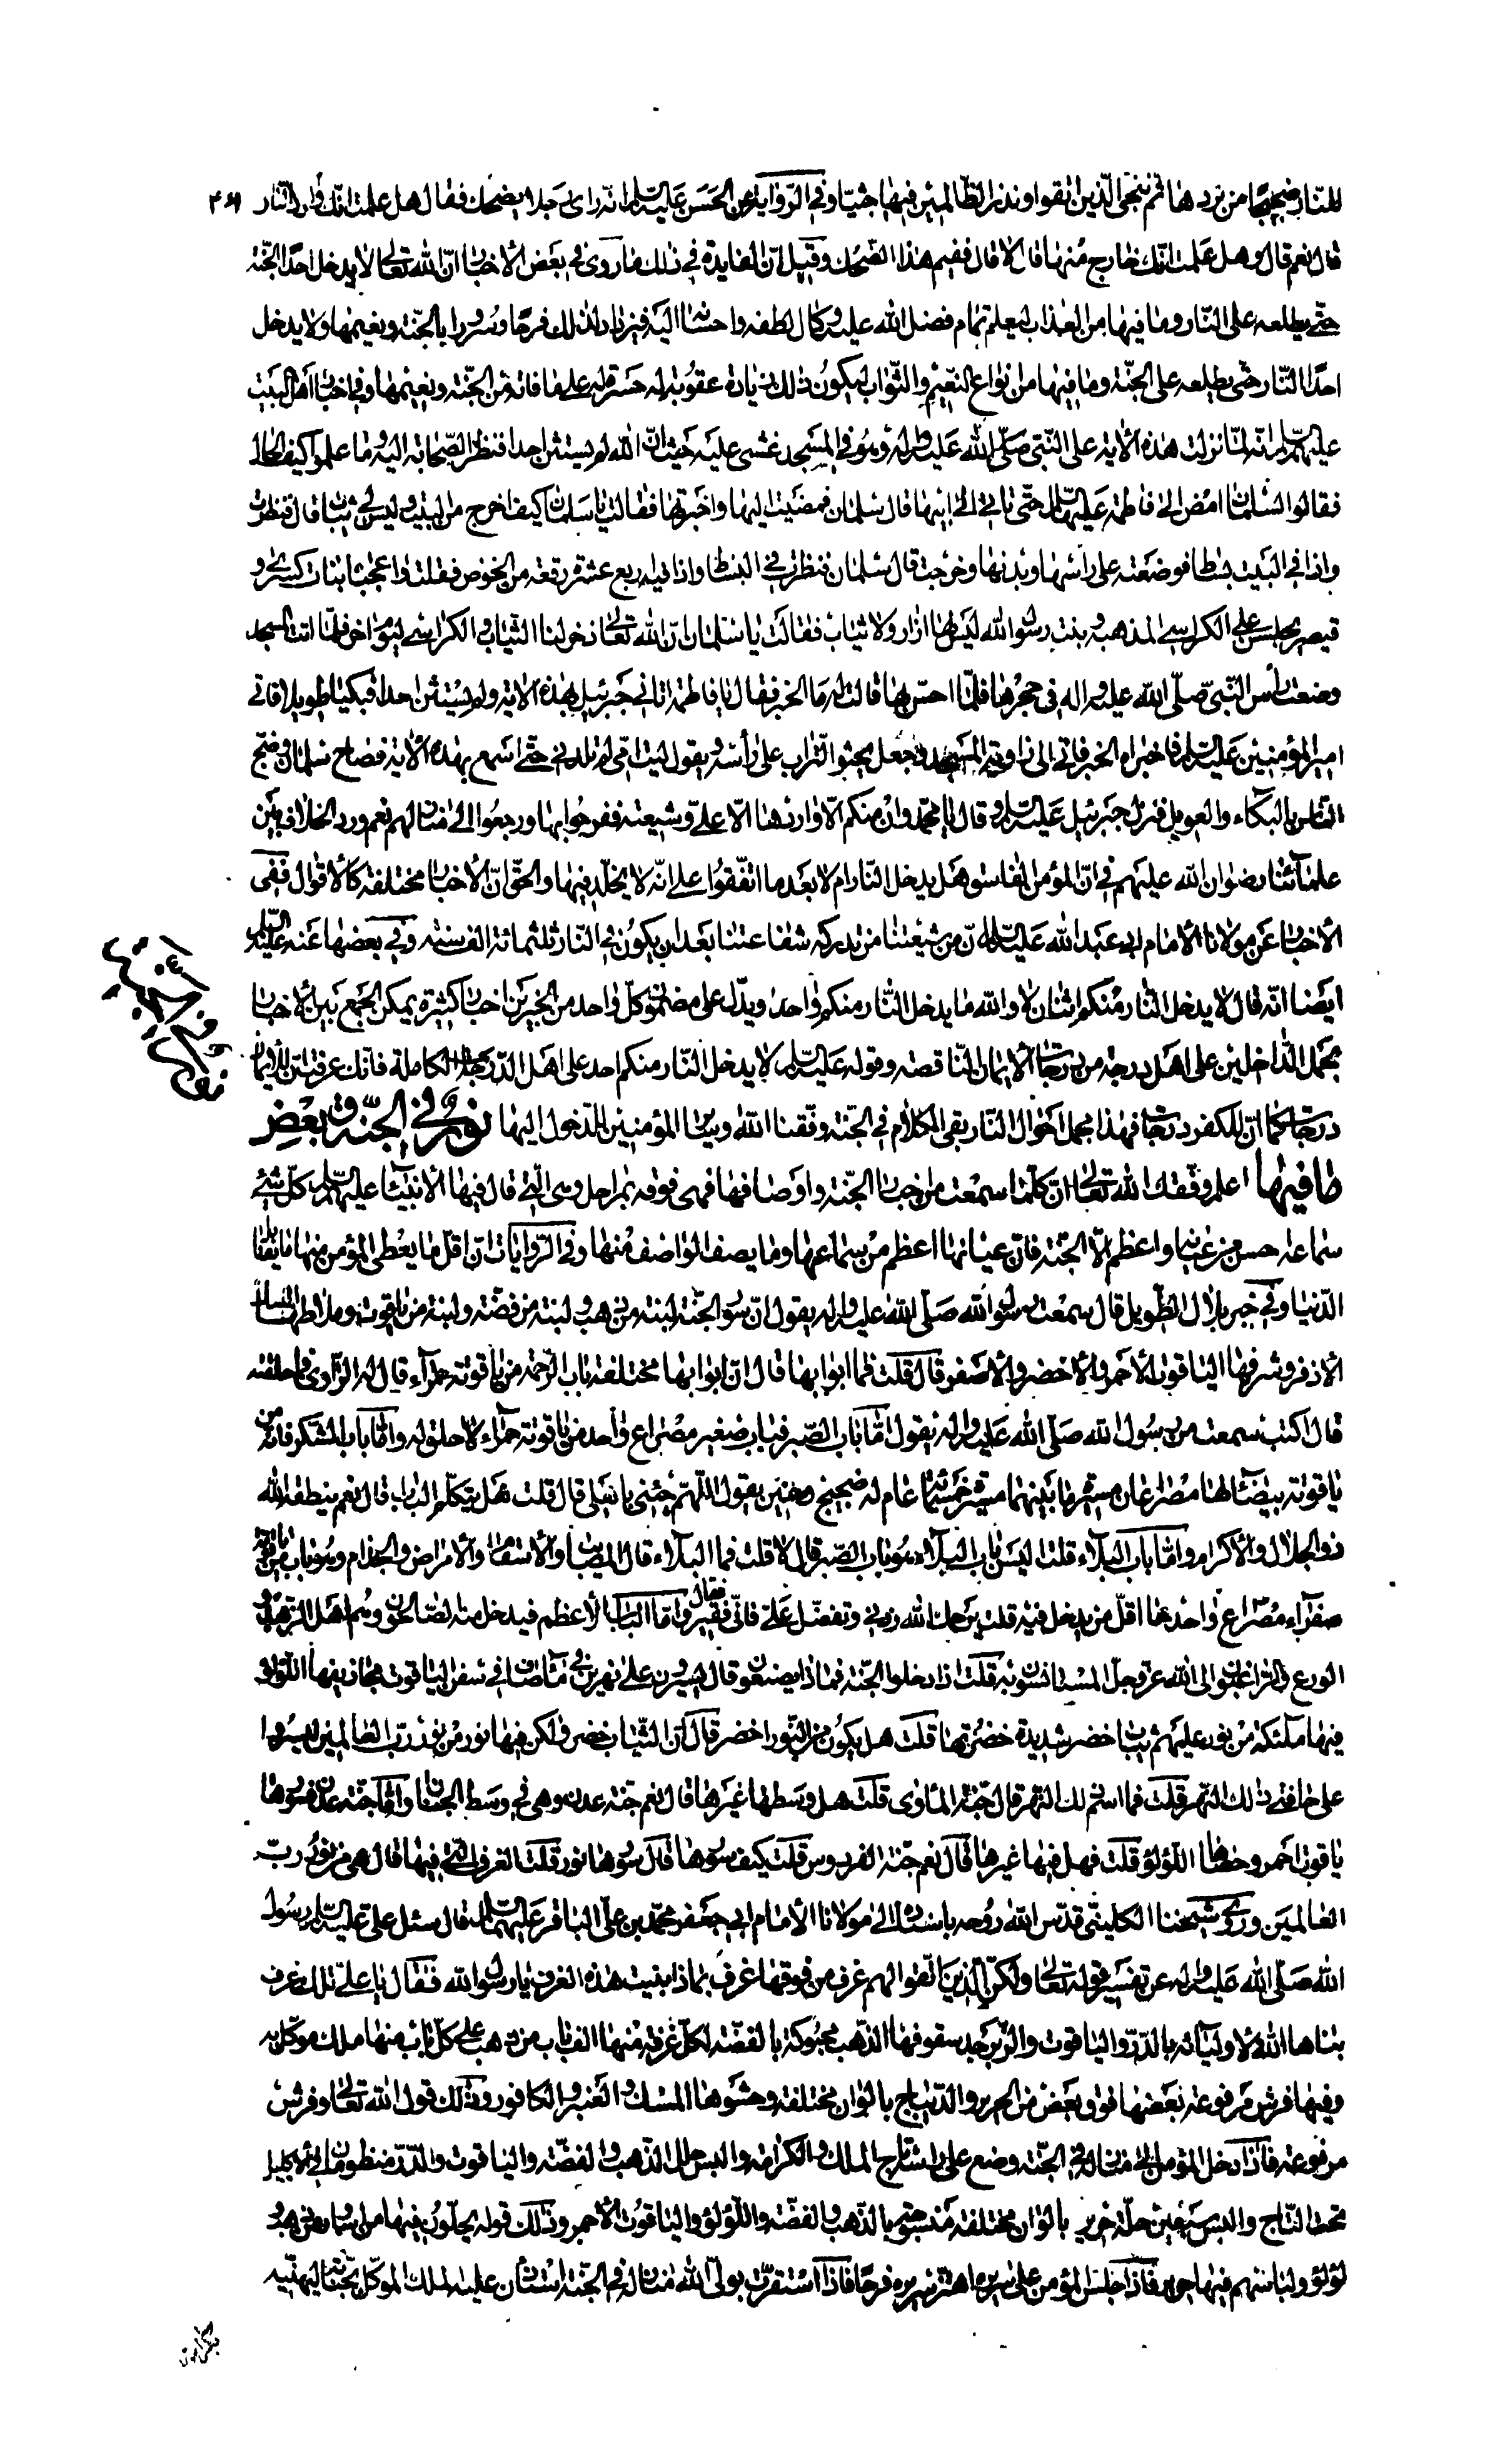 للنار ضجيجا من بردها ثم ننجى الذين اتقوا ونذر الظالمين فيها جثيا وفي الرواية عن الحسن عليه السلام انه راى رجلا يضحك فقال هل علمت انك وارد النار
قال نعم قال وهل علمت انك خارج منها قال لا قال ففيم هذا الضحك وقيل ان الفايدة في ذلك ما روى في بعض الأخبار ان الله تعالى لا يدخل احدا الجنة
حتى يطلعه على النار وما فيها من العذاب ليعلم تمام فضل الله عليه وكمال لطفه واحسانه اليه فيزداد لذلك فرحا وسرورا بالجنة ونعيمها ولا يدخل
احدا النار حتى يطلعه على الجنة وما فيها من انواع النعيم والثواب ليكون ذلك زيادة عقوبة له حسرة له على ما فاته من الجنة ونعيمها وفي اخبار اهل البيت
عليهم السلام انه لما نزلت هذه الأية على النبي صلى الله عليه واله وهو في المسجد غشى عليه حيث ان الله لم يستثن احدا فنظر الصحابة اليه وما علموا كيف الحال
فقالوا لسلمان امض الى فاطمة عليها السلام حتى تاتي الى ابيها قال سلمان فمضيت اليها واخبرتها فقالت يا سلمان كيف اخرج من البيت وليس لي ثياب قال فنظرت
واذا في البيت بساط فوضعته على راسها وبدنها وخرجت قال سلمان فنظرت في البساط واذا فيه اربع عشرة رقعة من الخوص فقلت وا عجبا بنات كسرى و
قيصر يجلسن على الكراسي المذهبة وبنت رسول الله ليس لها ازار ولا ثياب فقالت يا سلمان ان الله تعالى ذخر لنا الثياب والكراسي ليوم اخر فلما اتت المسجد
وضعت راس النبي صلى الله عليه واله في حجرها فلما احس بها قالت له ما الخبر فقال يا فاطمة اتاني جبرئيل بهذه الاية ولم يستثن احدا فبكيا طويلا فاتى
امير المؤمنين عليه السلام فاخبراه الخبر فاتى الى زاوية المسجد وجعل يحثو التراب على راسه ويقول ليت امي لم تلدني حتى اسمع بهذه الأية فصاح سلمان وضج
الناس بالبكاء والعويل فنزل جبرئيل عليه السلام وقال يا محمد وان منكم الا واردها الا على وشيعته ففرحوا بها ورجعوا الى منازلهم نعم ورد الخلاف بين
علمائنا رضوان الله عليهم في ان المؤمن الفاسق هل يدخل النار ام لا بعد ما اتفقوا على انه لا يخلد فيها والحق ان الأخبار مختلفة كالأقوال ففى
الأخبار عن مولانا الأمام ابي عبد الله عليه السلام ان من شيعتنا من تدركه شفاعتنا بعد ان يكون في النار ثلثمائة الف سنة وفي بعضها عنه عليه السلام
ايضا انه قال لا يدخل النار منكم اثنان لا والله ما يدخل النار منكم واحد ويدل على مضمون كل واحد من الخبرين اخبار كثيرة يمكن الجمع بين الأخبار
بحمل الداخلين على اهل درجة من درجات الأيمان الناقصة وقوله عليه السلام لا يدخل النار منكم احد على اهل الدرجات الكاملة فانك عرفت ان للأيمان
درجات كما ان للكفر درجات فهذا مجمل احوال النار بقى الكلام في الجنة وفقنا الله وسائر المؤمنين للدخول اليها نور في الجنة وبعض
ما فيها اعلم وفقك الله تعالى ان كلما سمعت من اخبار الجنة واوصافها فهى فوقه بمراحل وهى التي قال فيها الأنبياء عليهم السلام كل شيء
سماعه احسن من عيانه واعظم الا الجنة فان عيانها اعظم من سماعها وما يصف الواصف منها وفي الروايات ان اقل ما يعطى المؤمن منها ما يقابل
الدنيا وفي خبر بلال الطويل قال سمعت رسول الله صلى الله عليه واله يقول ان سور الجنة لبنة من ذهب ولبنة من فضة ولبنة من ياقوت وملاطها المسك
الأذفر وشرفها الياقوت الأحمر والأخضر والأصفر قال قلت فما ابوابها قال ان ابوابها مختلفة باب الرحمة من ياقوتة حمراء قال له الراوى فما حلقته
قال اكتب سمعت من رسول الله صلى الله عليه واله يقول اما باب الصبر فباب صغير مصراع واحد من ياقوتة حمراء لا حلق له واما باب الشكر فانه من
ياقوتة بيضاء لها مصراعان مسيرة ما بينهما مسيرة خمسمائة عام له ضجيج وحنين يقول اللهم جئني باهلى قال قلت هل يتكلم الباب قال نعم ينطقه الله
ذو الجلال والأكرام واما باب البلاء قلت ليس باب البلاء هو باب الصبر قال لا قلت فما البلاء قال المصائب والأسقام والأمراض والجذام وهو باب من ياقوتة
صفراء مصراع واحد ما اقل من يدخل فيه قلت يرحمك الله زدني وتفضل على فانى فقير فقال واما الباب الأعظم فيدخل منه الصالحون وهم اهل الزهد و
الورع والراغبون الى الله عز وجل المستانسون به قلت اذا دخلوا الجنة فماذا يصنعون قال يسيرون على نهرين في ماء صاف في سفن الياقوت مجاذيفها اللؤلؤ
فيها ملئكة من نور عليهم ثياب خضر شديدة خضرتها قلت هل يكون من النور اخضر قال ان الثياب خضر ولكن فيها نور من نور رب العالمين ليسيروا
على حافتي ذلك النهر قلت فما اسم ذلك النهر قال جنة الماوى قلت هل وسطها غيرها قال نعم جنة عدن وهى في وسط الجنان واما جنة عدن فسورها
ياقوت احمر وحصاها اللؤلؤ قلت فهل فيها غيرها قال نعم جنة الفردوس قلت كيف سورها قال سورها نور قلت الغرف التي فيها قال هى من نور رب
العالمين وروى شيخنا الكلينى قدس الله روحه باسناده الى مولانا الأمام ابي جعفر محمد بن على الباقر عليهما السلام قال سئل على عليه السلام رسول
الله صلى الله عليه واله عن تفسير قوله تعالى ولكن الذين اتقوا لهم غرف من فوقها غرف بماذا بنيت هذه الغرف يا رسول الله فقال يا على تلك غرف
بناها الله لأوليائه بالدر والياقوت والزبرجد سقوفها الذهب محبوكة بالفضة لكل غرفة منها الف باب من ذهب على كل باب منها ملك موكل به
وفيها فرش مرفوعة بعضها فوق بعض من الحرير والديباج بالوان مختلفة وحشوها المسك والعنبر والكافور وذلك قول الله تعالى وفرش
مرفوعة فاذا دخل المؤمن الى منازله في الجنة وضع على راسه تاج الملك والكرامة والبس حلل الذهب والفضة والياقوت والدر منظوما في الأكليل
تحت التاج والبس سبعين حلة حرير بالوان مختلفة منسوجة بالذهب والفضة واللؤلؤ والياقوت الأحمر وذلك قوله يحلون فيها من اساور من ذهب و
لؤلؤ ولباسهم فيها حرير فاذا جلس المؤمن على سريره اهتز سريره فرحا فاذا استقرت بولى الله منازله في الجنة استاذن عليه الملك الموكل بجنانه ليهنيه